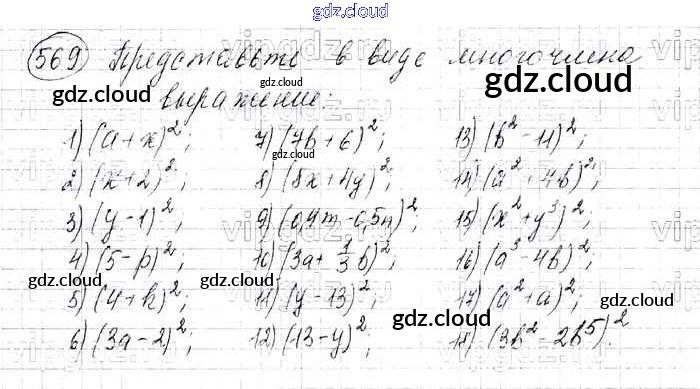 gdz.cloud
569 Представьте в виде многочлена
выражение:
1) (a+x)²; 7) (7b+6)²; 13) (b²-11)²;
2) (x+2)²; 8) (8x+4y)²; 14) (a²-4b)²;
3) (y-1)²; 9) (0,4m-0,5n)²; 15) (x²+y³)²;
4) (5-p)²; 10) (3a+1/3b)²; 16) (a³-4b)²;
5) (4+k)²; 11) (y-13)²; 17) (a²+a)²;
6) (3a-2)²; 12) (-13-y)²; 18) (3b²-2b⁵)².
gdz.cloud
gdz.cloud
gdz.cloud
gdz.cloud
gdz.cloud
gdz.cloud
gdz.cloud
gdz.cloud